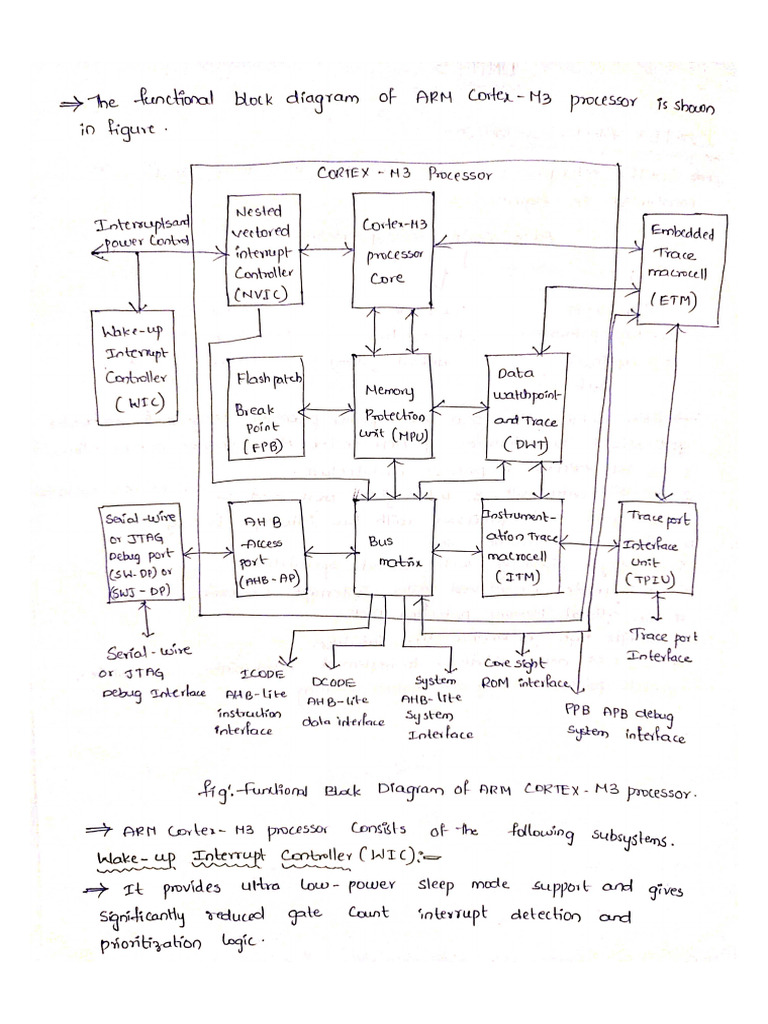 ⇒ The functional block diagram of ARM Cortex-M3 processor is shown
in figure.
CORTEX-M3 Processor
Interrupts and
power Control
Nested
vectored
interrupt
Controller
(NVIC)
Cortex-M3
processor
Core
Embedded
Trace
macrocell
(ETM)
Wake-up
Interrupt
Controller
(WIC)
Flash patch
Break
Point
(FPB)
Memory
Protection
unit (MPU)
Data
watchpoint
and Trace
(DWT)
Serial-wire
or JTAG
Debug port
(SW-DP) or
(SWJ-DP)
AHB
-Access
port
(AHB-AP)
Bus
matrix
Instrument-
ation Trace
macrocell
(ITM)
Trace port
Interface
Unit
(TPIU)
Serial-wire
or JTAG
Debug Interface
ICODE
AHB-lite
instruction
interface
DCODE
AHB-lite
data interface
System
AHB-lite
System
Interface
Core sight
ROM interface
PPB APB debug
System interface
Trace port
Interface
fig:-Functional Block Diagram of ARM CORTEX-M3 processor.
⇒ ARM Cortex-M3 processor Consists of the following subsystems.
Wake-up Interrupt Controller (WIC):-
⇒ It provides ultra low-power sleep mode support and gives
significantly reduced gate Count interrupt detection and
prioritization logic.